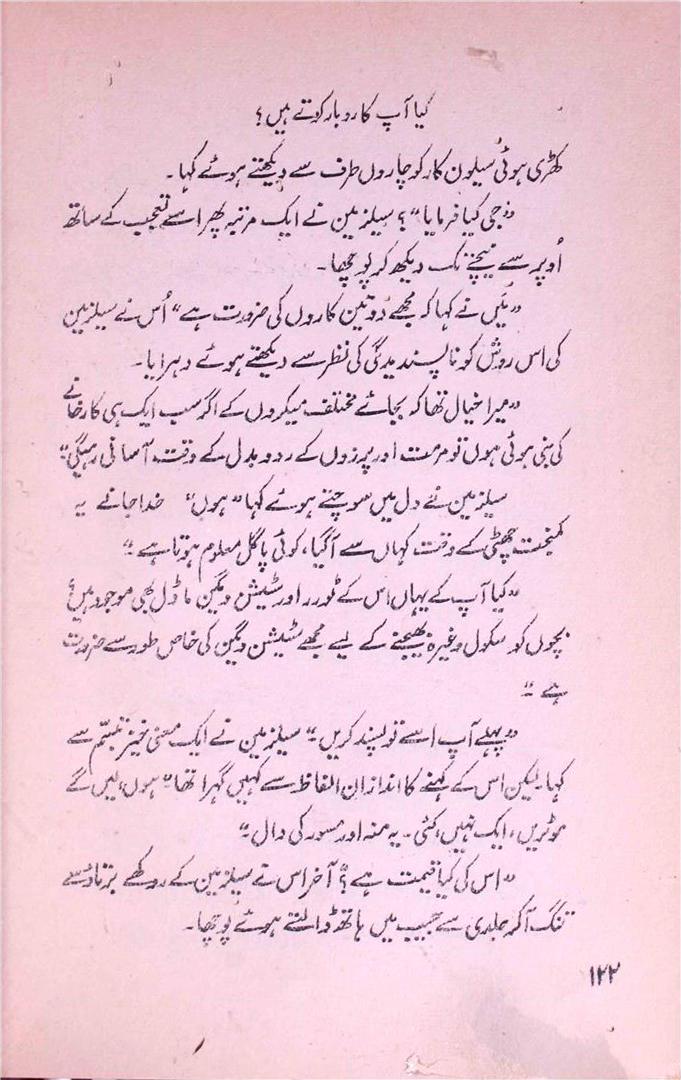 کیا آپ کاروبار کرتے ہیں؟
کھڑی ہوئی سیلون کار کو چاروں طرف سے دیکھتے ہوئے کہا۔
"جی کیا فرمایا"؟ سیلزمین نے ایک مرتبہ پھر اسے تعجب کے ساتھ
اُوپر سے نیچے تک دیکھ کر پوچھا۔
"میں نے کہا کہ مجھے دو تین کاروں کی ضرورت ہے" اُس نے سیلزمین
کی اس روش کو ناپسندیدگی کی نظر سے دیکھتے ہوئے دہرایا۔
"میرا خیال تھا کہ بجائے مختلف میکروں کے اگر سب ایک ہی کارخانے
کی بنی ہوئی ہوں تو مرمت اور پرزوں کے ردوبدل کے وقت آسانی رہیگی"
سیلزمین نے دل میں سوچتے ہوئے کہا "ہوں" خدا جانے یہ
کمبخت چھٹی کے وقت کہاں سے آگیا، کوئی پاگل معلوم ہوتا ہے۔"
"کیا آپ کے یہاں اس کے ٹورر اور سٹیشن ویگن ماڈل بھی موجود ہیں؟
بچوں کو سکول وغیرہ بھیجنے کے لیے مجھے سٹیشن ویگن کی خاص طور سے ضرورت
ہے۔"
"پہلے آپ اسے تو پسند کریں۔" سیلزمین نے ایک معنی خیز تبسّم سے
کہا۔ لیکن اس کے کہنے کا انداز ان الفاظ سے کہیں گہرا تھا "ہوں، لیں گے
موٹریں، ایک نہیں، کئی۔ یہ منہ اور مسور کی دال۔"
"اس کی کیا قیمت ہے؟" آخر اس نے سیلزمین کے روکھے برتاؤ سے
تنگ آکر جلدی سے جیب میں ہاتھ ڈالتے ہوئے پوچھا۔
۱۲۲